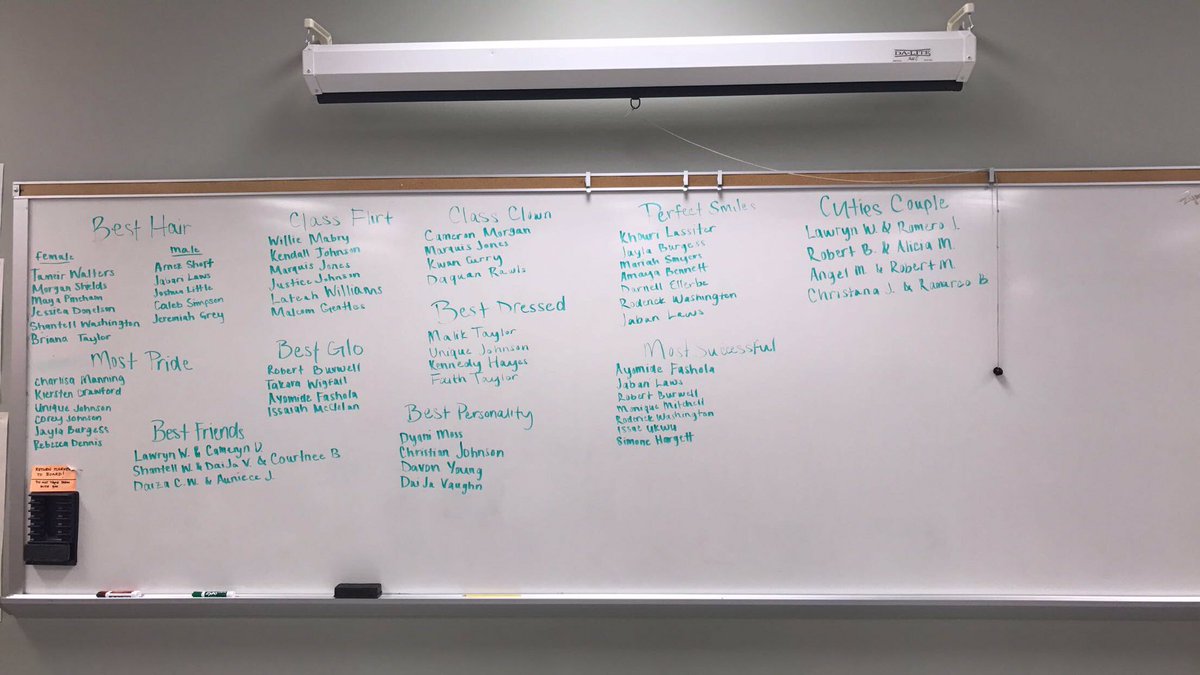 DA-LITE
Best Hair
female
Tamir Walters
Morgan Shields
Maya Pincham
Jessica Donelson
Shantell Washington
Briana Taylor
male
Amoz Short
Jabari Laws
Joshua Little
Caleb Simpson
Jeremiah Grey
Most Pride
Charlisa Manning
Kiersten Crawford
Unique Johnson
Corey Johnson
Jayla Burgess
Rebecca Dennis
Best Friends
Lawryn W. & Cameryn D.
Shantell W. & DaiJa V. & Courtnee B
Daiza C.W. & Auniece J.
Class Flirt
Willie Mabry
Kendall Johnson
Marquis Jones
Justice Johnson
Lateah Williams
Malcom
Best Glo
Robert Burwell
Takara Wigfall
Ayomide Fashola
Issaiah McClilan
Class Clown
Cameron Morgan
Marquis Jones
Kwan Curry
Daquan Rawls
Best Dressed
Malik Taylor
Unique Johnson
Kennedy Hayes
Faith Taylor
Best Personality
Dyani Moss
Christian Johnson
Davon Young
DaiJa Vaughn
Perfect Smiles
Khouri Lassiter
Jayla Burgess
Mariah Smyers
Amaya Bennett
Darnell Ellerbe
Roderick Washington
Jabari Laws
Most Successful
Ayomide Fashola
Jabari Laws
Robert Burwell
Monique Mitchell
Roderick Washington
Issac Ukwu
Simone Hargett
Cuties Couple
Lawryn W. & Romero I.
Robert B. & Alicia M.
Angel M. & Robert M.
Christana J. & Ramarco B
RETURN MARKER
TO BOARD!